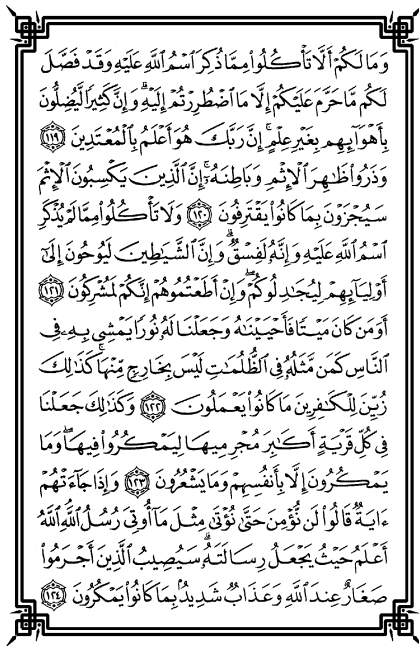 وَمَا لَكُمْ أَلَّا تَأْكُلُوا۟ مِمَّا ذُكِرَ ٱسْمُ ٱللَّهِ عَلَيْهِ وَقَدْ فَصَّلَ
لَكُم مَّا حَرَّمَ عَلَيْكُمْ إِلَّا مَا ٱضْطُرِرْتُمْ إِلَيْهِ ۗ وَإِنَّ كَثِيرًا لَّيُضِلُّونَ
بِأَهْوَآئِهِم بِغَيْرِ عِلْمٍ ۗ إِنَّ رَبَّكَ هُوَ أَعْلَمُ بِٱلْمُعْتَدِينَ ١١٩
وَذَرُوا۟ ظَٰهِرَ ٱلْإِثْمِ وَبَاطِنَهُۥٓ ۚ إِنَّ ٱلَّذِينَ يَكْسِبُونَ ٱلْإِثْمَ
سَيُجْزَوْنَ بِمَا كَانُوا۟ يَقْتَرِفُونَ ١٢٠ وَلَا تَأْكُلُوا۟ مِمَّا لَمْ يُذْكَرِ
ٱسْمُ ٱللَّهِ عَلَيْهِ وَإِنَّهُۥ لَفِسْقٌ ۗ وَإِنَّ ٱلشَّيَٰطِينَ لَيُوحُونَ إِلَىٰٓ
أَوْلِيَآئِهِمْ لِيُجَٰدِلُوكُمْ ۖ وَإِنْ أَطَعْتُمُوهُمْ إِنَّكُمْ لَمُشْرِكُونَ ١٢١
أَوَمَن كَانَ مَيْتًا فَأَحْيَيْنَٰهُ وَجَعَلْنَا لَهُۥ نُورًا يَمْشِى بِهِۦ فِى
ٱلنَّاسِ كَمَن مَّثَلُهُۥ فِى ٱلظُّلُمَٰتِ لَيْسَ بِخَارِجٍ مِّنْهَا ۚ كَذَٰلِكَ
زُيِّنَ لِلْكَٰفِرِينَ مَا كَانُوا۟ يَعْمَلُونَ ١٢٢ وَكَذَٰلِكَ جَعَلْنَا
فِى كُلِّ قَرْيَةٍ أَكَٰبِرَ مُجْرِمِيهَا لِيَمْكُرُوا۟ فِيهَا ۖ وَمَا
يَمْكُرُونَ إِلَّا بِأَنفُسِهِمْ وَمَا يَشْعُرُونَ ١٢٣ وَإِذَا جَآءَتْهُمْ
ءَايَةٌ قَالُوا۟ لَن نُّؤْمِنَ حَتَّىٰ نُؤْتَىٰ مِثْلَ مَآ أُوتِىَ رُسُلُ ٱللَّهِ ۘ ٱللَّهُ
أَعْلَمُ حَيْثُ يَجْعَلُ رِسَالَتَهُۥ ۗ سَيُصِيبُ ٱلَّذِينَ أَجْرَمُوا۟
صَغَارٌ عِندَ ٱللَّهِ وَعَذَابٌ شَدِيدٌۢ بِمَا كَانُوا۟ يَمْكُرُونَ ١٢٤